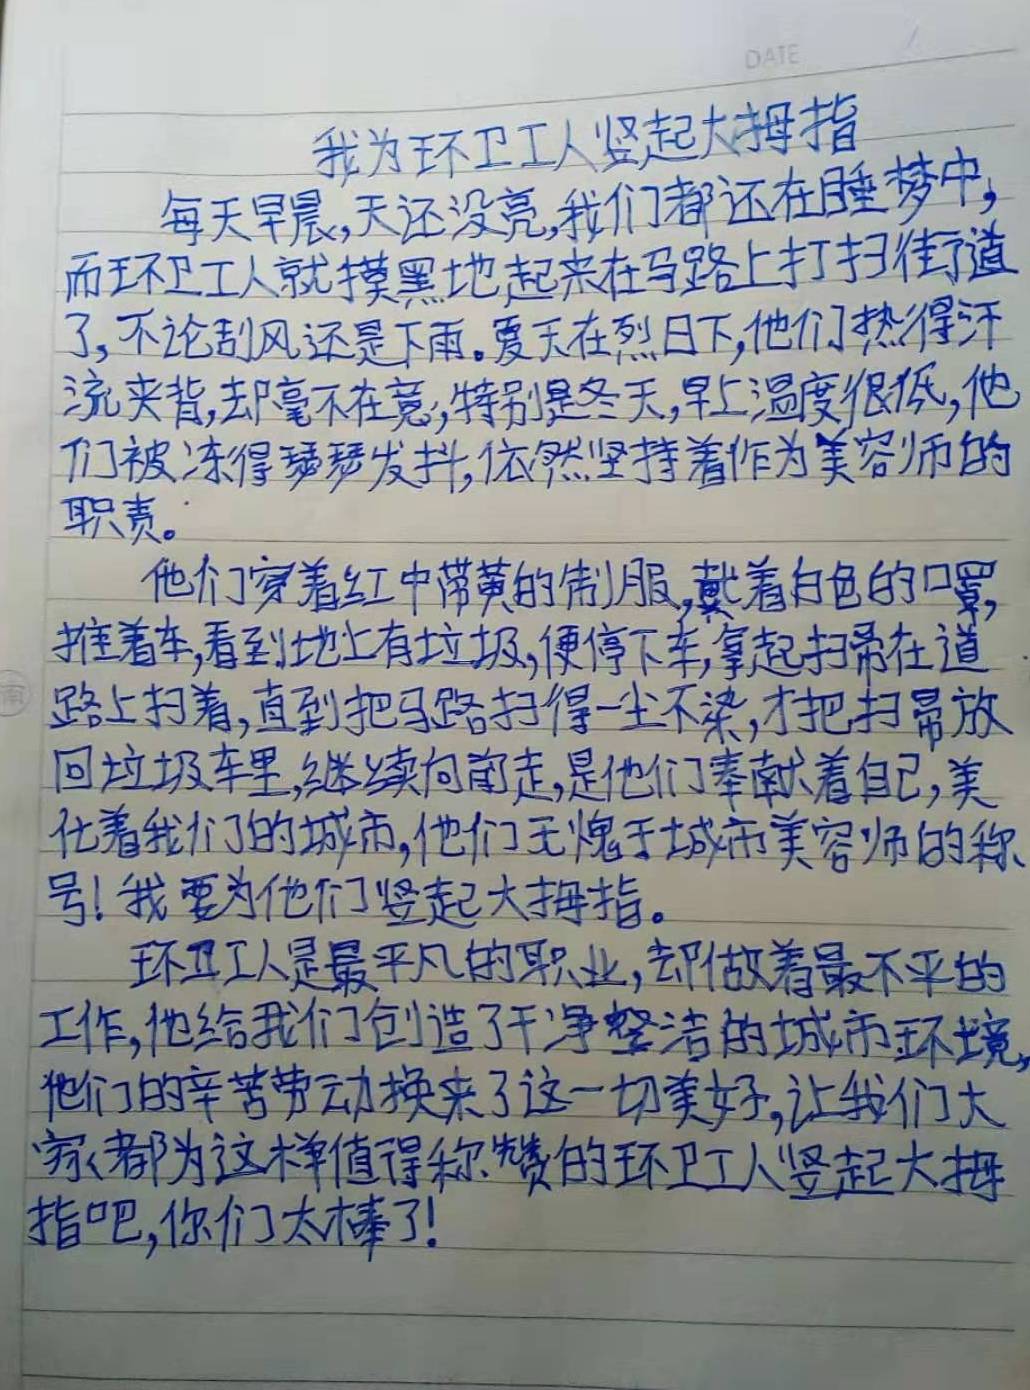 DATE
我为环卫工人竖起大拇指
每天早晨,天还没亮,我们都还在睡梦中,
而环卫工人就摸黑地起来在马路上打扫街道
了,不论刮风还是下雨。夏天在烈日下,他们热得汗
流夹背,却毫不在意,特别是冬天,早上温度很低,他
们被冻得瑟瑟发抖,依然坚持着作为美容师的
职责。
他们穿着红中带黄的制服,戴着白色的口罩,
推着车,看到地上有垃圾,便停下车,拿起扫帚在道
路上扫着,直到把马路扫得一尘不染,才把扫帚放
回垃圾车里,继续向前走,是他们奉献着自己,美
化着我们的城市,他们无愧于城市美容师的称
号!我要为他们竖起大拇指。
环卫工人是最平凡的职业,却做着最不平的
工作,他给我们创造了干净整洁的城市环境,
他们的辛苦劳动换来了这一切美好,让我们大
家都为这样值得称赞的环卫工人竖起大拇
指吧,你们太棒了!